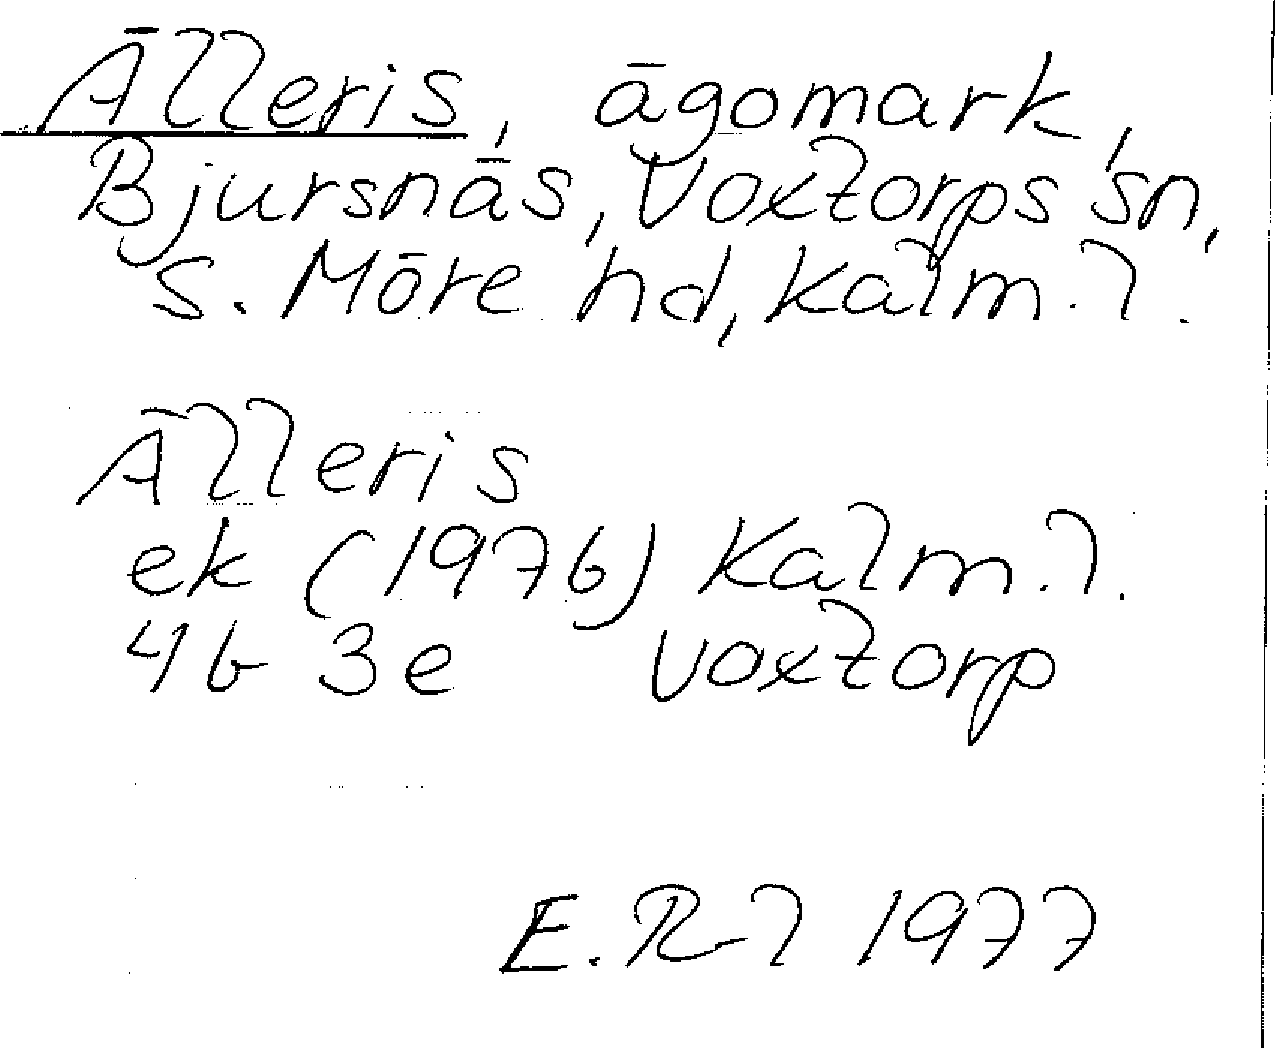 Älleris, ägomark,
Bjursnäs, Voxtorps sn,
S. Möre hd, Kalm. l.
Älleris
ek (1976) Kalm. l.
4b 3e Voxtorp
1977